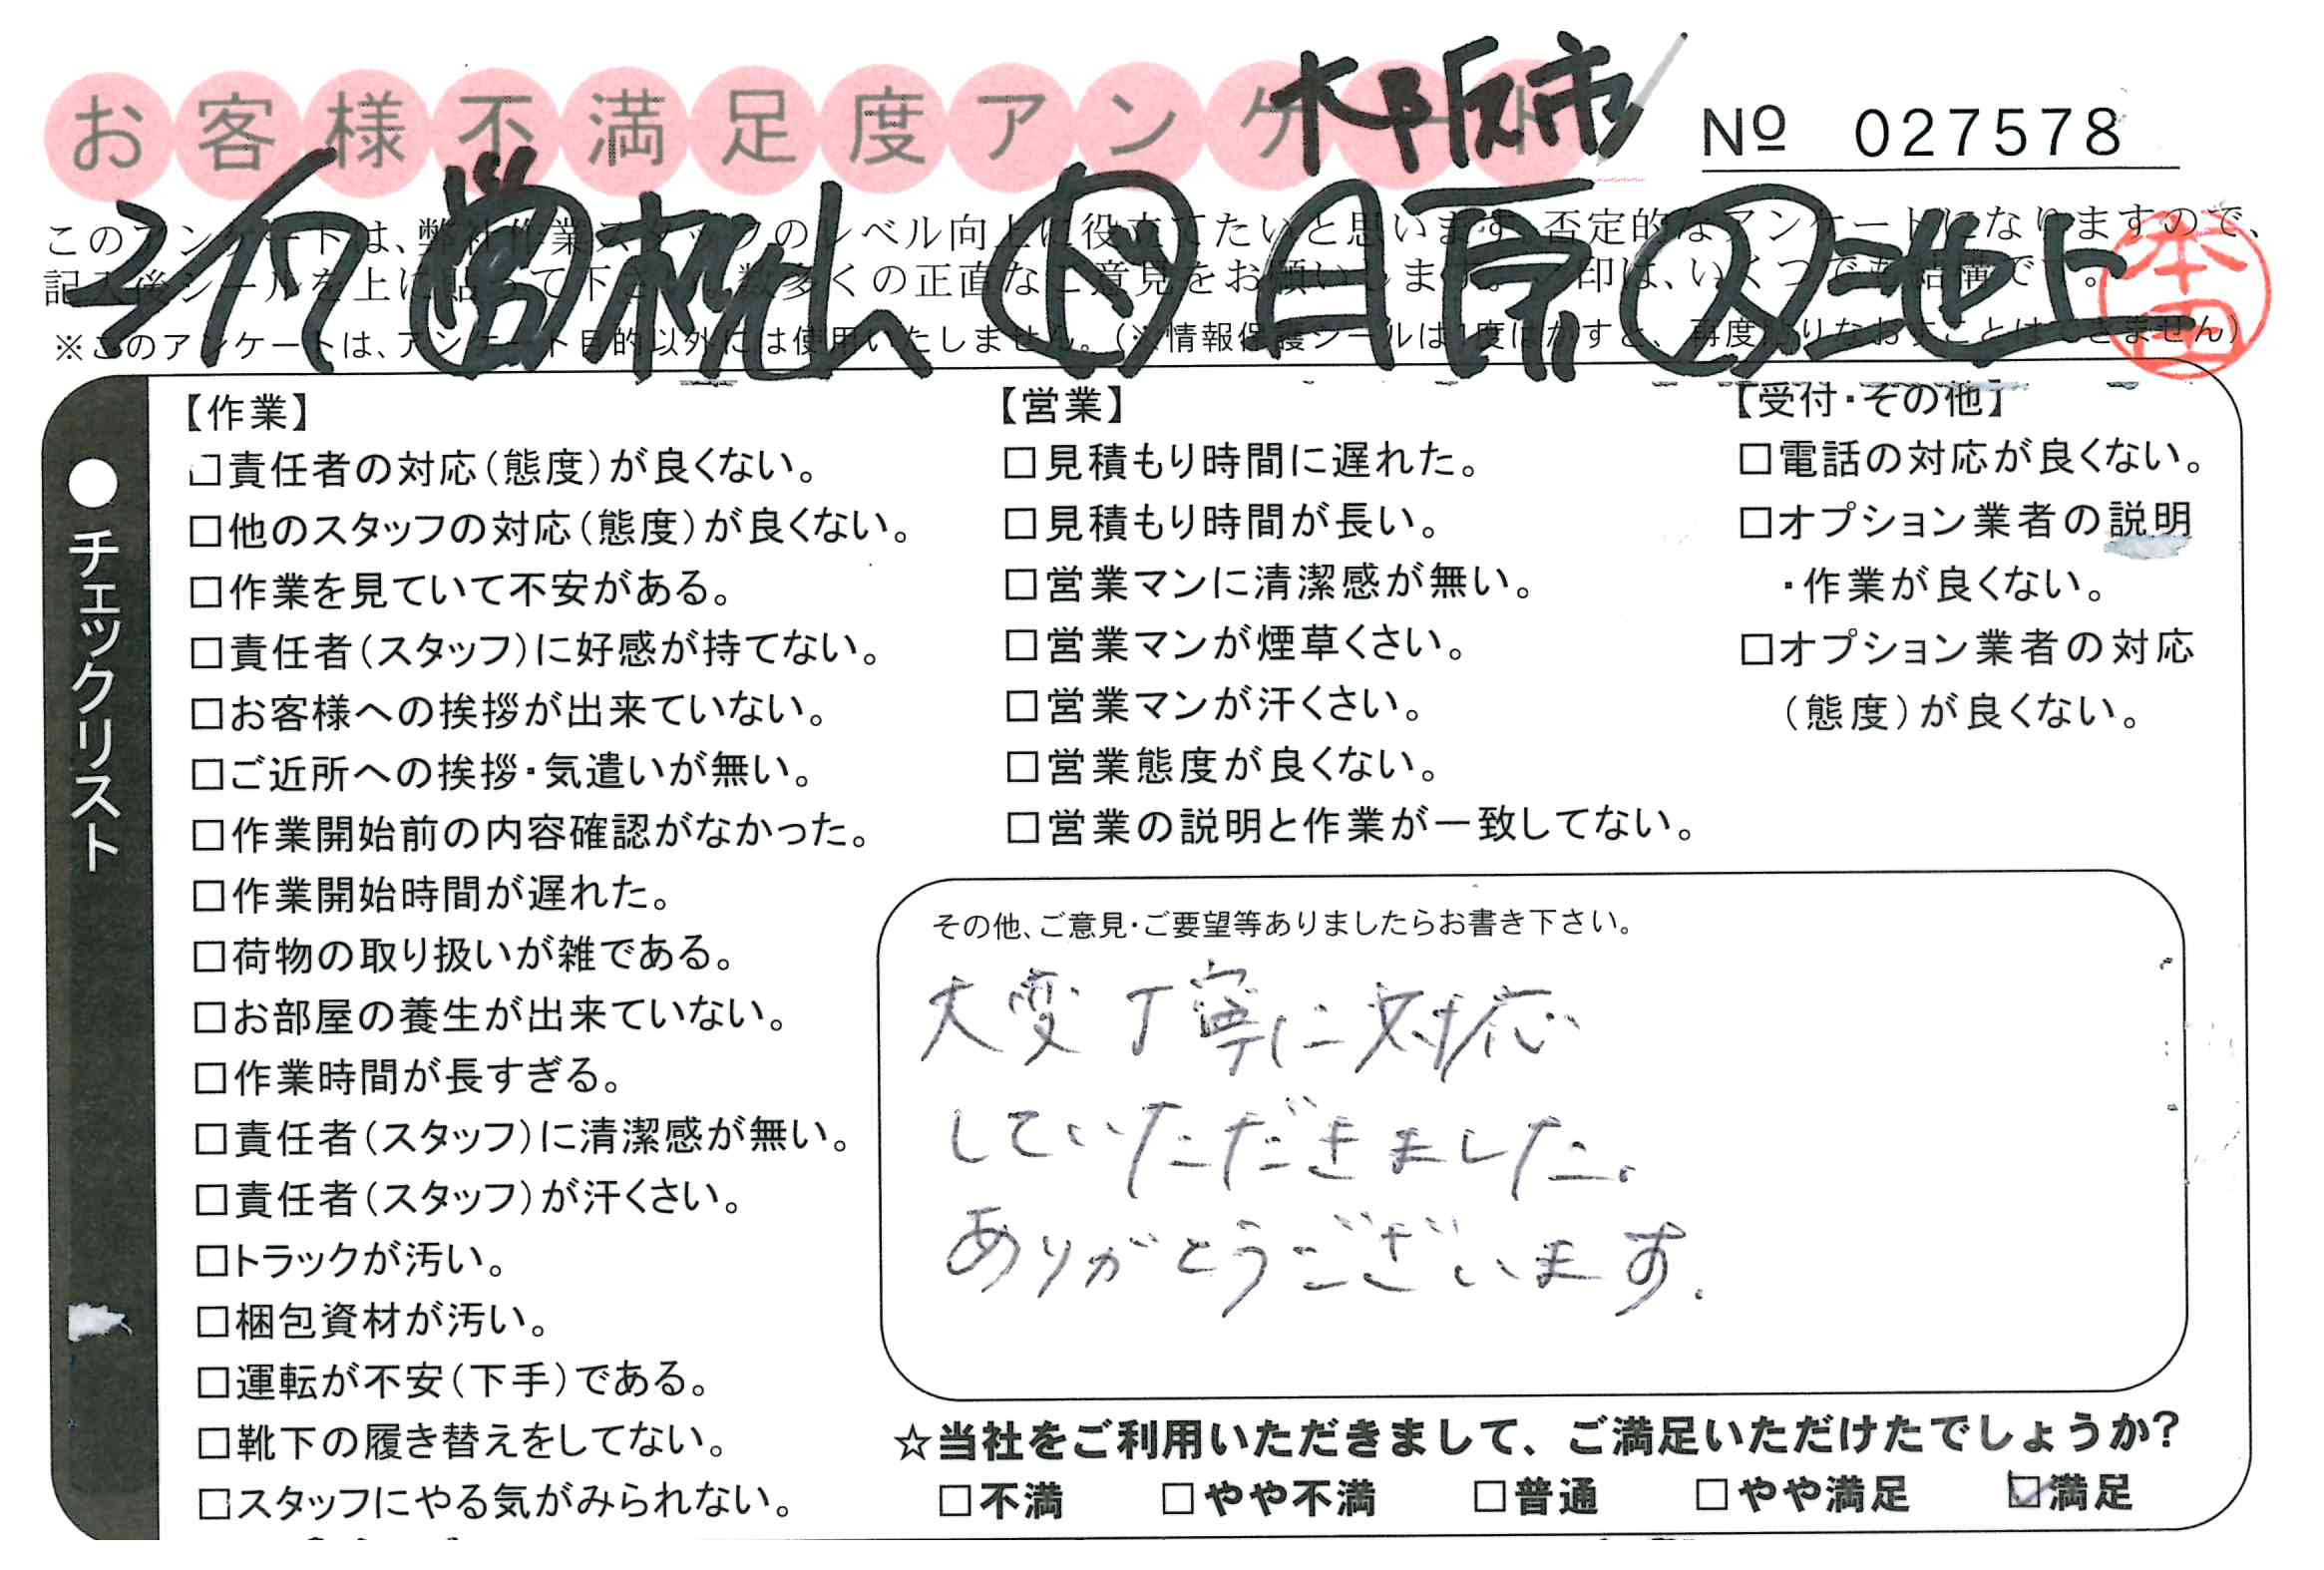 お客様不満足度アンケート
大阪市
№ 027578
2/17 営 松山 作 日原 ス 池上
本田
このアンケートは、弊社作業スタッフのレベル向上に役立てたいと思います。否定的なアンケートになりますので、
記入後シールを上に貼って下さい。数多くの正直なご意見をお願いします。印は、いくつでも結構です。
※このアンケートは、アンケート目的以外には使用いたしません。（※情報保護シールは1度はがすと、再度貼りなおすことはできません）
●チェックリスト
【作業】
□責任者の対応（態度）が良くない。
□他のスタッフの対応（態度）が良くない。
□作業を見ていて不安がある。
□責任者（スタッフ）に好感が持てない。
□お客様への挨拶が出来ていない。
□ご近所への挨拶・気遣いが無い。
□作業開始前の内容確認がなかった。
□作業開始時間が遅れた。
□荷物の取り扱いが雑である。
□お部屋の養生が出来ていない。
□作業時間が長すぎる。
□責任者（スタッフ）に清潔感が無い。
□責任者（スタッフ）が汗くさい。
□トラックが汚い。
□梱包資材が汚い。
□運転が不安（下手）である。
□靴下の履き替えをしてない。
□スタッフにやる気がみられない。
【営業】
□見積もり時間に遅れた。
□見積もり時間が長い。
□営業マンに清潔感が無い。
□営業マンが煙草くさい。
□営業マンが汗くさい。
□営業態度が良くない。
□営業の説明と作業が一致してない。
【受付・その他】
□電話の対応が良くない。
□オプション業者の説明
・作業が良くない。
□オプション業者の対応
（態度）が良くない。
その他、ご意見・ご要望等ありましたらお書き下さい。
大変丁寧に対応
していただきました。
ありがとうございます。
☆当社をご利用いただきまして、ご満足いただけたでしょうか？
□不満 □やや不満 □普通 □やや満足 ☑満足